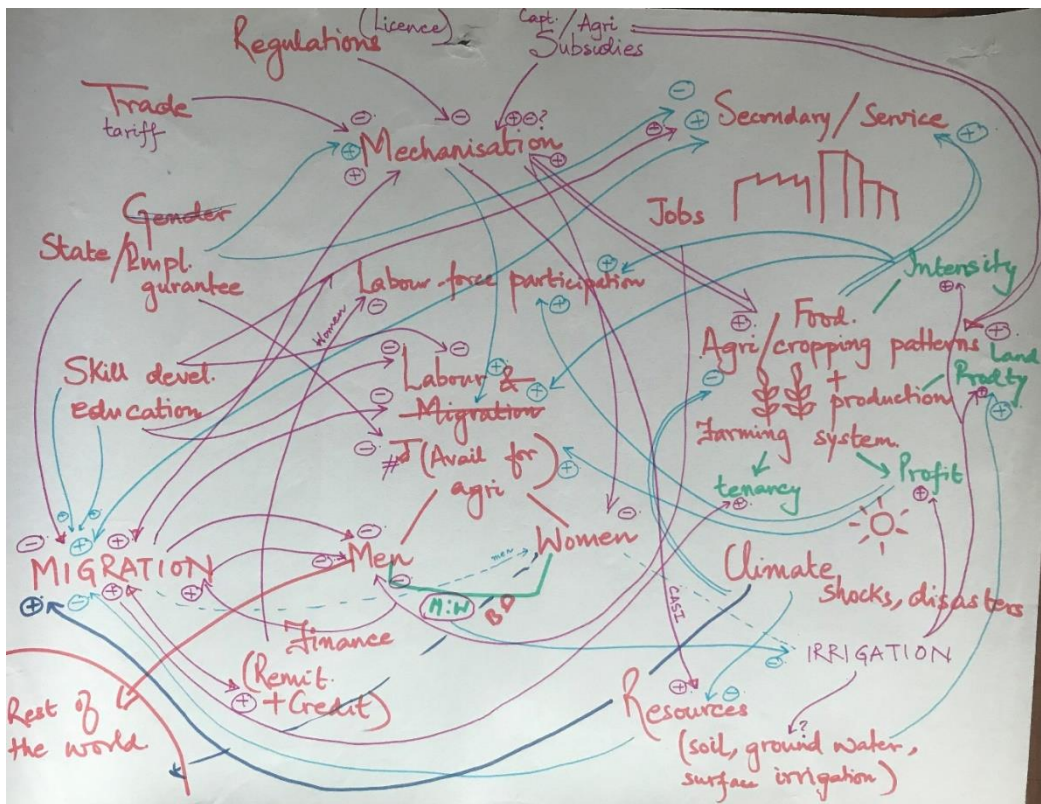 Regulations (Licence)
Capt./Agri
Subsidies
Trade
tariff
Mechanisation
Secondary/Service
Jobs
Gender
State/Empl.
gurantee
Labour force participation
Women
Intensity
Food.
Agri/cropping patterns
+
production
Land
Prodty
Farming system.
tenancy
Profit
Skill devel.
education
Labour &
Migration
# (Avail for)
agri
MIGRATION
Men
Women
men
M:W
B
Climate
shocks, disasters
CASI
IRRIGATION
Finance
(Remit.
+Credit)
Rest of
the world
Resources
(soil, ground water,
surface irrigation)
?